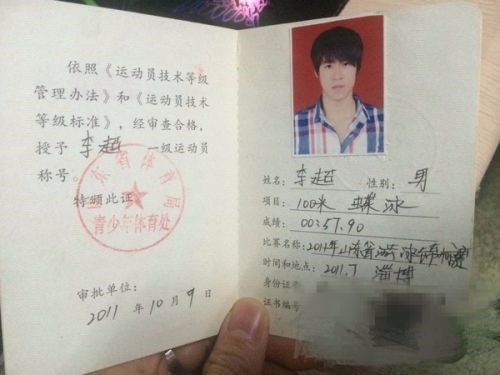 依照《运动员技术等级
管理办法》和《运动员技术
等级标准》，经审查合格，
授予 李超 一级运动员
称号。
特颁此证
东省体育局
青少年体育处
审批单位：
2011 年 10 月 9 日
姓名：李超 性别：男
项目：100米 蝶泳
成绩：00:57.90
比赛名称：2011年山东省游泳
时间和地点：2011.7 淄博
身份证
证书编号